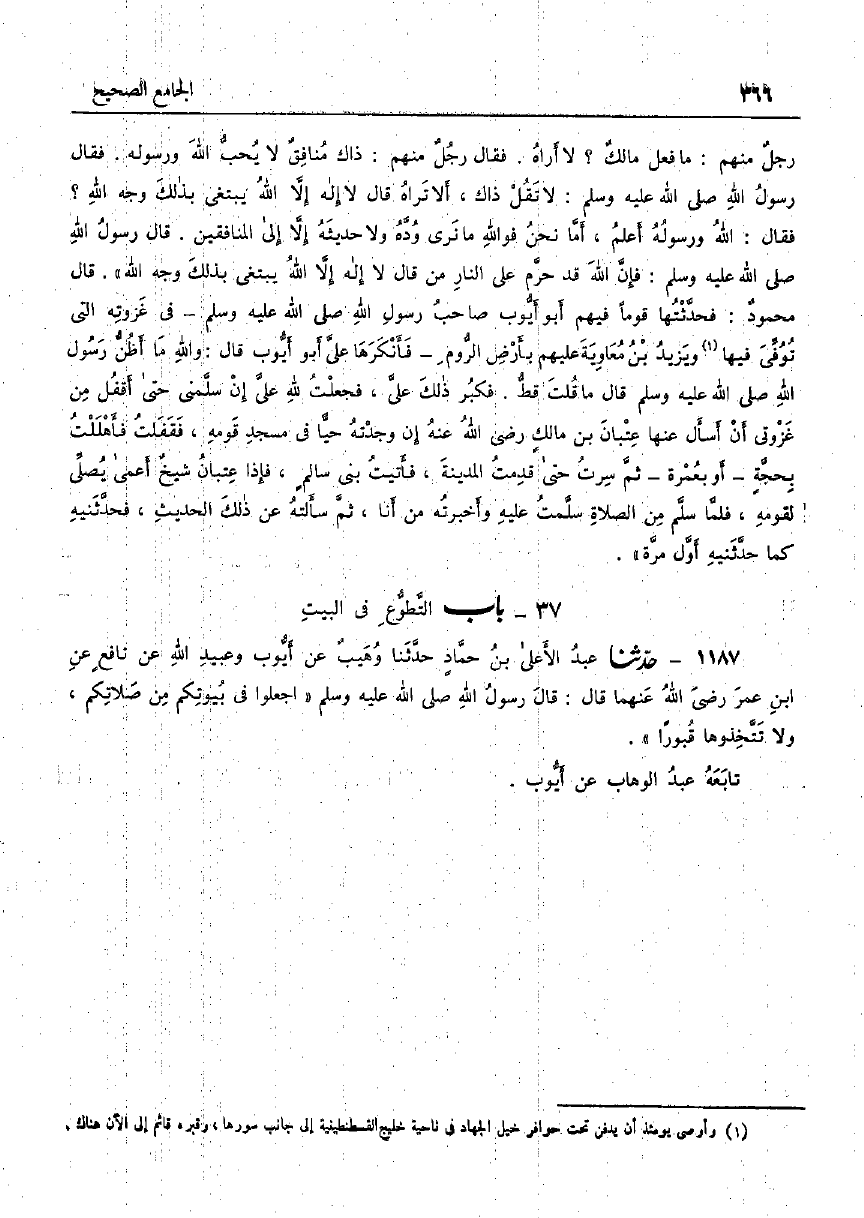 ٣٦٦ الجامع الصحيح
رجلٌ منهم : ما فعل مالكٌ ؟ لا أراهُ . فقال رجُلٌ منهم : ذاك مُنافِقٌ لا يُحبُّ اللهَ ورسوله . فقال
رسولُ اللهِ صلى الله عليه وسلم : لا تَقُلْ ذاك ، ألا تَراهُ قال لا إلٰه إلَّا اللهُ يبتغى بذٰلكَ وجهَ اللهِ ؟
فقال : اللهُ ورسولُهُ أعلمُ ، أمَّا نحنُ فواللهِ ما نَرى وُدَّهُ ولا حديثَهُ إلَّا إلىٰ المنافقين . قال رسولُ اللهِ
صلى الله عليه وسلم : فإنَّ اللهَ قد حرَّم على النارِ من قال لا إلٰه إلَّا اللهُ يبتغى بذلكَ وجهَ الله» . قال
محمودٌ : فحدَّثْتُها قوماً فيهم أبو أيُّوب صاحبُ رسولِ اللهِ صلى الله عليه وسلم – فى غَزوتِه التى
تُوُفِّىَ فيها (١) ويَزيدُ بْنُ مُعاوِيَةَ عليهم بأرْضِ الرُّوم ِ – فَأَنْكَرَهَا علىَّ أبو أيُّوب قال : واللهِ مَا أظُنُّ رَسُولَ
اللهِ صلى الله عليه وسلم قال ما قُلتَ قطُّ . فكبُر ذٰلكَ علىَّ ، فجعلْتُ للهِ علىَّ إنْ سلَّمنى حتىٰ أقفُل مِن
غَزْوتى أنْ أسأل عنها عِتْبانَ بن مالكٍ رضىَ اللهُ عنهُ إن وجدْتهُ حيًّا فى مسجدِ قَومهِ ، فَقَفَلتُ فأهْلَلْتُ
بِحجَّةٍ – أو بعُمْرة – ثمَّ سِرتُ حتىٰ قدِمتُ المدينةَ ، فأتيتُ بنى سالم ٍ ، فإذا عِتبانُ شيخٌ أعمىٰ يُصلِّى
لقومهِ ، فلمَّا سلَّم مِن الصلاةِ سلَّمتُ عليهِ وأخبرتُه من أنا ، ثمَّ سألتهُ عن ذٰلكَ الحديثِ ، فحدَّثَنيهِ
كما حدَّثَنيهِ أوَّل مرَّة» .
٣٧ – باب التَّطوُّع ِ فى البيتِ
١١٨٧ – حدّثنا عبدُ الأعلىٰ بنُ حمَّادٍ حدَّثَنا وُهَيبٌ عن أيُّوب وعبيدِ اللهِ عن نافع ٍ عنِ
ابنِ عمرَ رضىَ اللهُ عَنهما قال : قالَ رسولُ اللهِ صلى الله عليه وسلم « اجعلوا فى بُيوتِكم مِن صَلاتِكم ،
ولا تَتَّخِذوها قُبورًا » .
تابَعَهُ عبدُ الوهاب عن أيُّوب .
(١) وأوصى يومئذ أن يدفن تحت حوافر خيل الجهاد فى ناحية خليج القسطنطينية إلى جانب سورها ، وقبره قائم إلى الآن هناك .